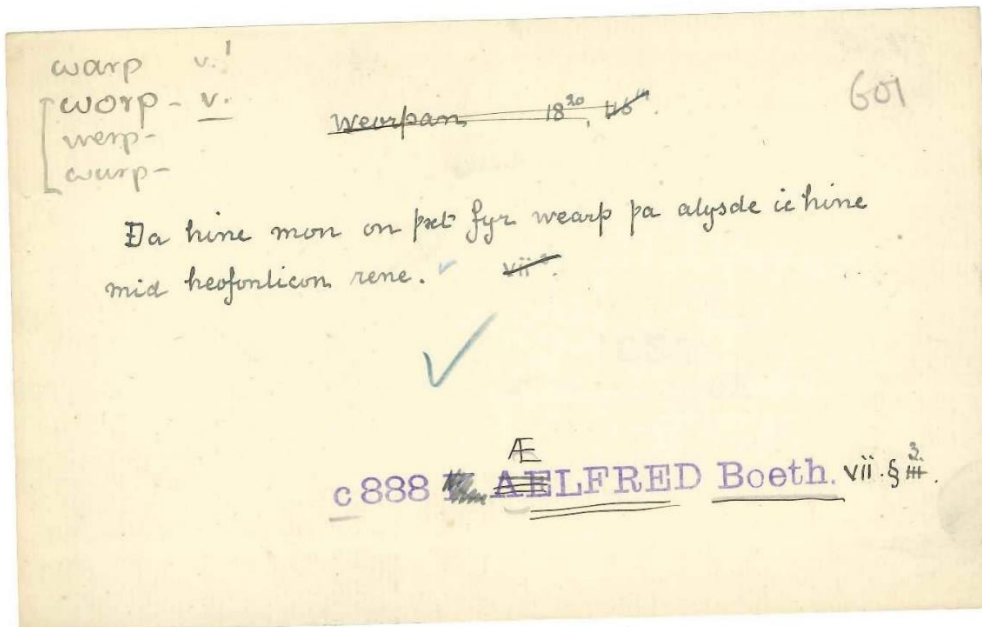 warp v.¹
worp- v.
werp-
wurp-
601
weorpan 18²⁰,
Ða hine mon on þæt fyr wearp þa alysde ic hine
mid heofonlicon rene. vii
c 888 ÆLFRED Boeth. vii. § 3.